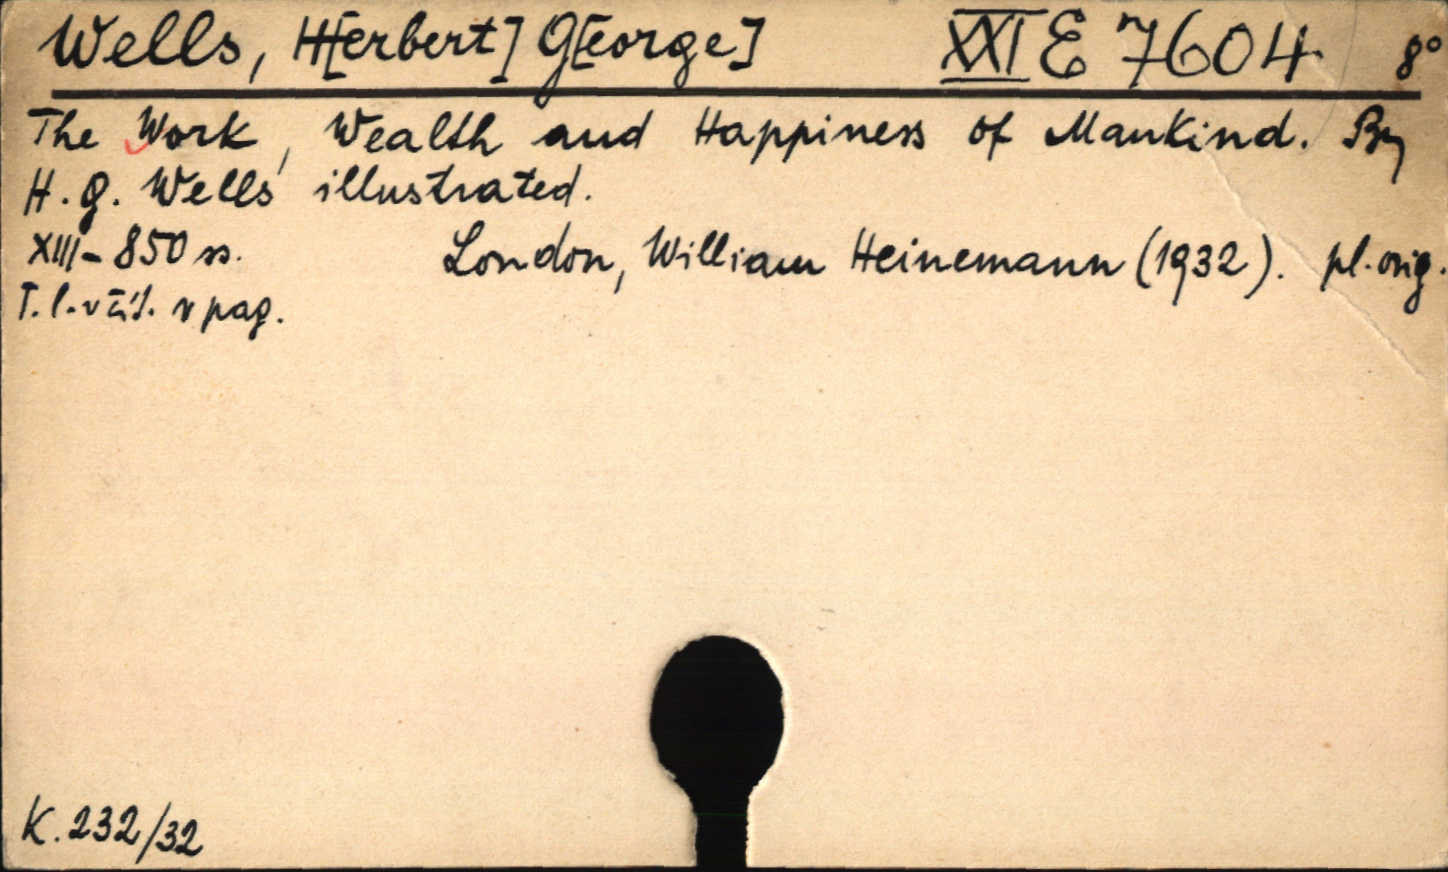 Wells, H[erbert] G[eorge] XXI E 7604 8°
The Work, Wealth and Happiness of Mankind. By
H. G. Wells illustrated.
XIII-850 ss. London, William Heinemann (1932). pl. orig.
T. l. v čís. v pag.
K. 232/32